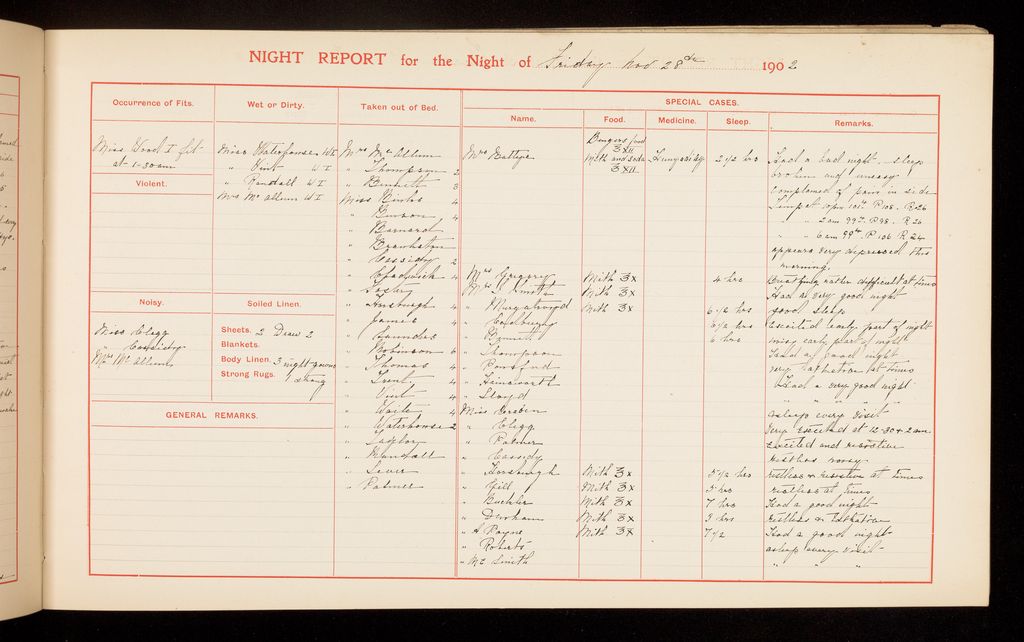 NIGHT REPORT for the Night of Friday Nov 28th 1902
Occurrence of Fits.
Miss Wood I fit
at 1-30am
Violent.
Noisy.
Miss Clegg
" Cassidy
Mrs Mc Allum
Wet or Dirty.
Miss Waterhouse WI
" Vint WI
" Randall WI
Mrs Mc Allum WI
Soiled Linen.
Sheets. 2 Draw 2
Blankets.
Body Linen. 3 night gowns
Strong Rugs. 1 strong
GENERAL REMARKS.
Taken out of Bed.
Mrs Mc Allum
" Thompson 2
" Bennett 3
Miss Binns 4
" Benson 4
" Barnard
" Crankston
" Cassidy 2
" Chadwick 4
" Foster
" Horsburgh 4
" James 4
" Saunders
" Robinson 6
" Thomas 4
" Trent 4
" Vint 4
" Waite 4
" Waterhouse 2
" Taylor
" Randall
" Lever
" Palmer
SPECIAL CASES.
Name. Food. Medicine. Sleep. Remarks.
Bengers food
ʒXII
Mrs Battye Milk and soda 2 1/2 hrs Had a bad night. sleep
ʒXII broken and uneasy
complained of pain in side
Temp at 10pm P 108. R 26
" " 2am P 98. R 26
" 6am P 106 R 24
appears very depressed this
morning.
Mrs Gregory Milk ʒx 4 hrs Breathing rather difficult at times
Mrs S. Smith Milk ʒx Had a very good night
" Murgatroyd Milk ʒx 6 1/2 hrs good sleep
" 6 1/2 hrs Excited early part of night
" Bennett 6 hrs noisy early part of night
" Thompson Had a good night
" Ponsford very at times
" Hainsworth Had a very good night
" Lloyd " " " "
Miss asleep every visit
" Clegg Very Excited at 12-30 & 2am.
" Palmer Excited and resistive
" Cassidy restless noisy
" Horsburgh Milk ʒx 5 1/2 hrs restless & resistive at times
" Hill Milk ʒx 5 hrs restless at times
" Buckler Milk ʒx 7 hrs Had a good night
" Denham Milk ʒx 3 hrs restless &
" A Payne Milk ʒx 7 1/2 Had a good night
" Roberts asleep every visit
" Mc Smith " " "